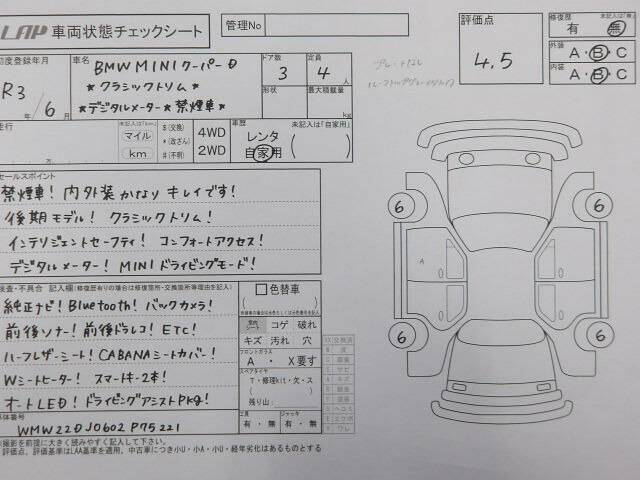 LAP 車両状態チェックシート
管理No
評価点
4.5
修復歴 未記入は「無」
有・無
外装
A・B・C
内装
A・B・C
初度登録年月
R3
/6
年 月
車名
BMW MINI クーパーD
★クラシックトリム★
★デジタルメーター★禁煙車★
ドア数
3
定員
4 人
形状
最大積載量
kg
走行
未記入は「km」
マイル
km
$(交換)
*(改ざん)
#(不明)
4WD
2WD
車歴 未記入は「自家用」
レンタ
自家用
セールスポイント
禁煙車! 内外装かなりキレイです!
後期モデル! クラシックトリム!
インテリジェントセーフティ! コンフォートアクセス!
デジタルメーター! MINIドライビングモード!
検査・不具合 記入欄(修復歴有りの場合は修復箇所・交換箇所等理由を記入)
純正ナビ! Bluetooth! バックカメラ!
前後ソナー! 前後ドラレコ! ETC!
ハーフレザーシート! CABANAシートカバー!
Wシートヒーター! スマートキー2本!
オートLED! ドライビングアシストPKG!
色替車
コゲ 破れ
キズ 汚れ 穴
フロントガラス
A ・ X要す
スペアタイヤ
T・修理kit・欠・ス
残り山
工具
有・無
ジャッキ
有・無
車体番号
WMW22DJ0602P75221
6
6
6
6
A
※撮影を前提に大きく読みやすく記入して下さい。
評価点、評価基準はLAA基準を適用、中古車につき小U・小A・小U・経年劣化はあるものとする